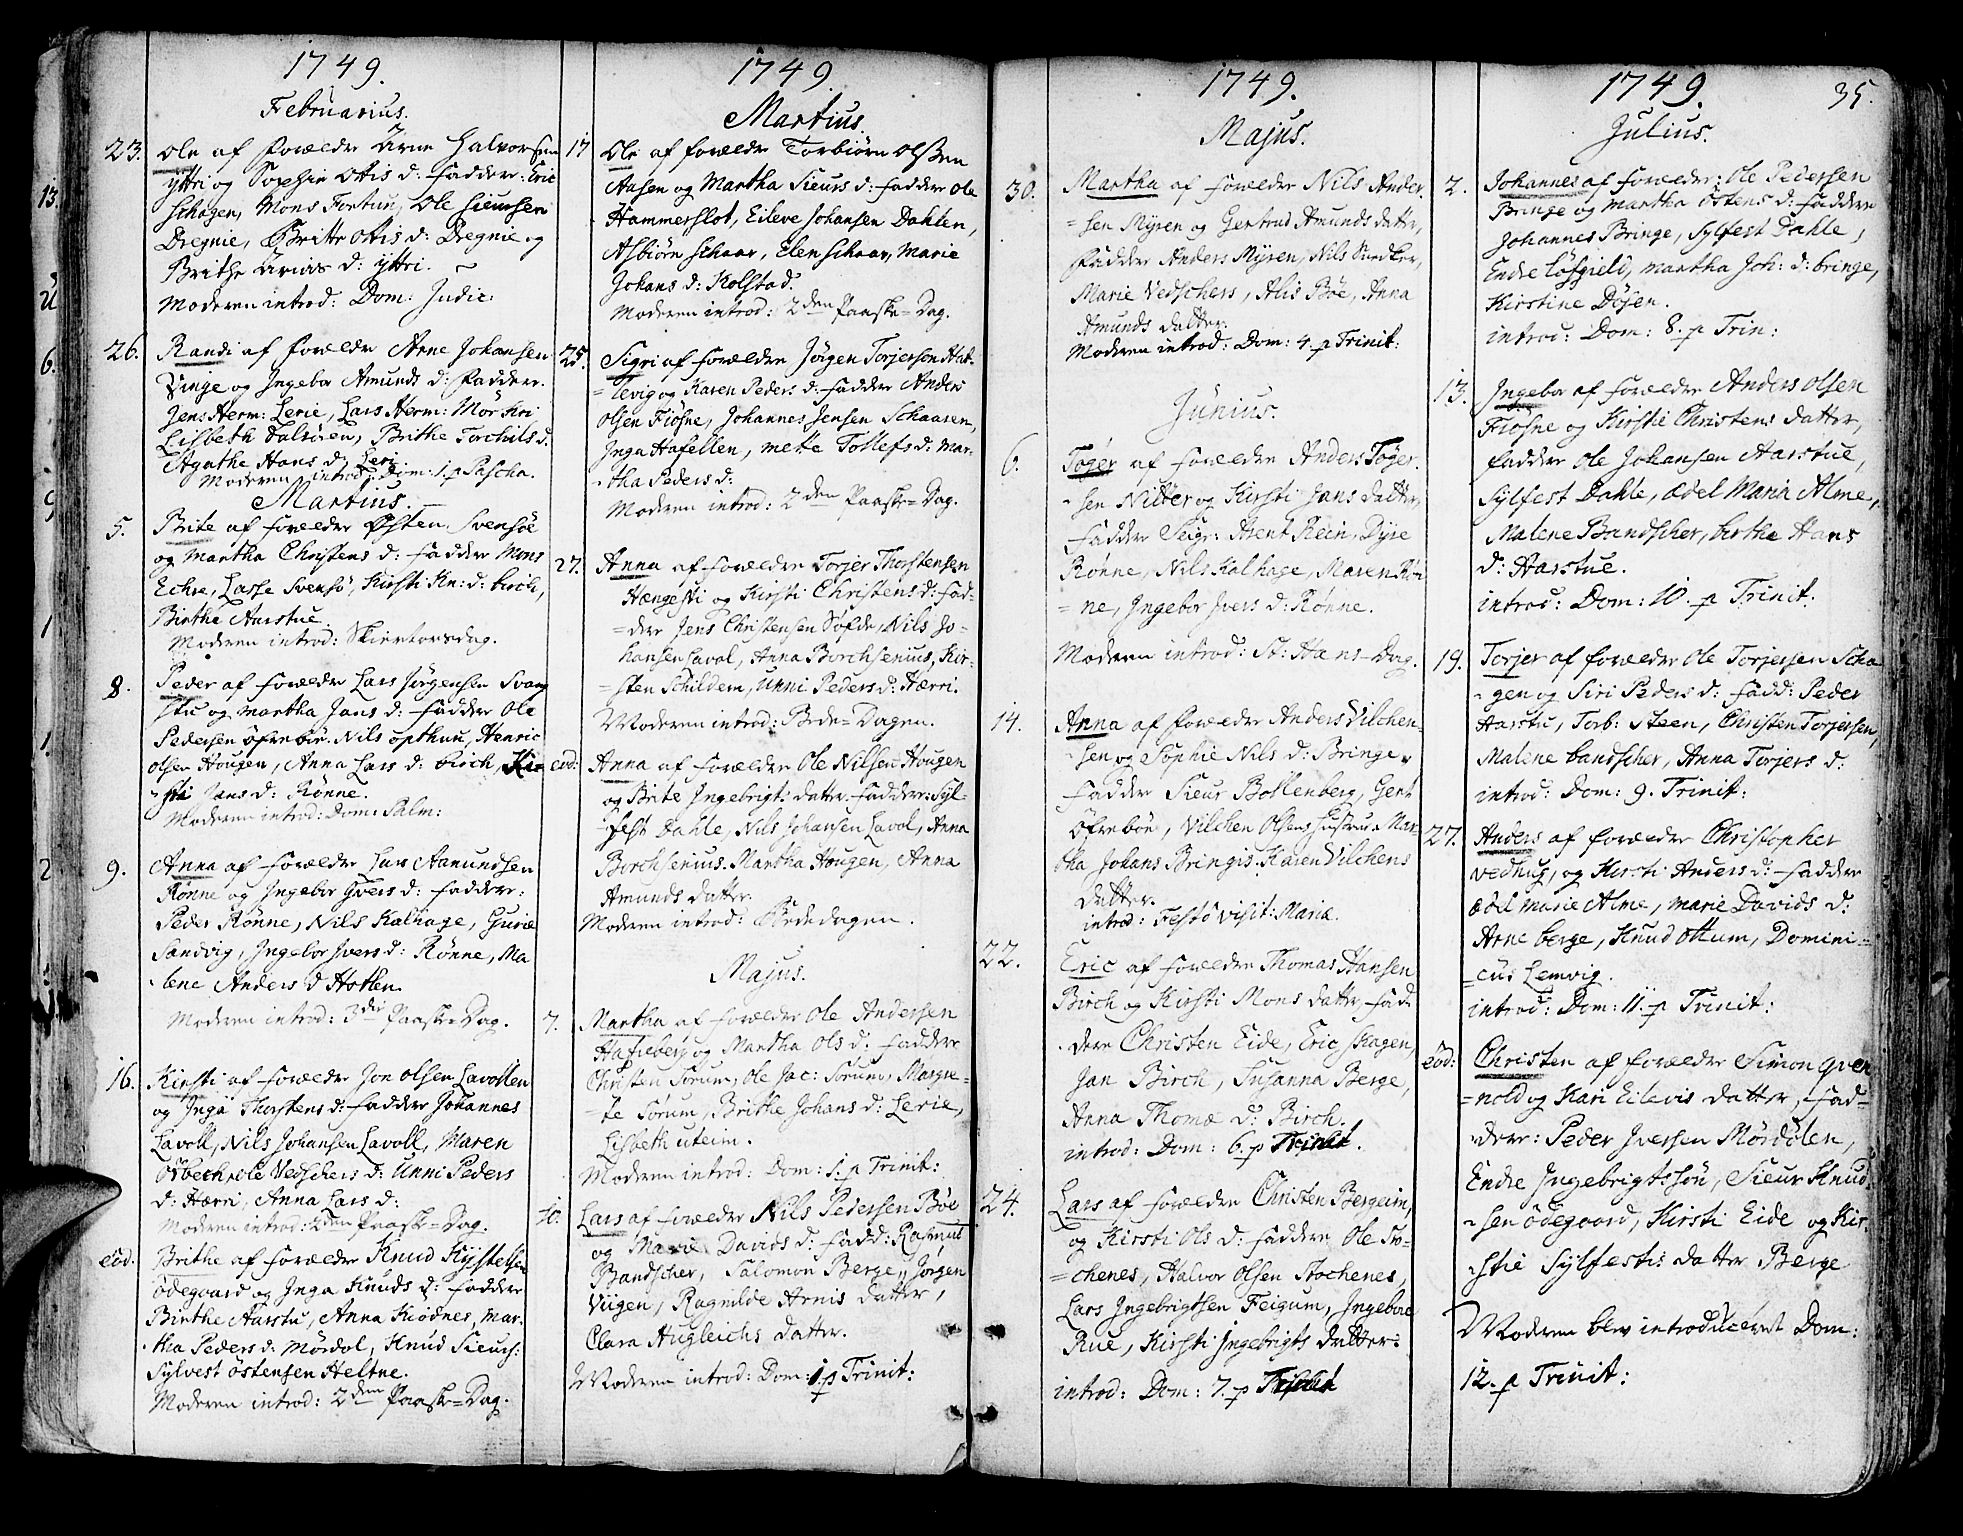 1749.
Februarius.
23. Ole af forældre Arne Halvorsen
yttri og Sophie Ottis d: faddere: Eric
schagen, Mons Fortun, Ole Sieursen
Dregnie, Britte Ottis d: Dregnie og
Brithe Arnis d: yttri.
Moderen introd: Dom: Judic:
26. Randi af forældre Arne Johansen
Bringe og Ingebor Amunds d: Faddere.
Jens Herm: Lerie, Lars Herm: Mörkri
Lisbeth Dalsören, Brithe Torchils d.
Agathe Hans d: Leri
Moderen introd: Dom: 1. p Pascha.
Martius.
5. Brite af forældre Østen Svensöe
og Martha Christens d: faddere Mons
Echre, Lasse Svensö, Kirsti Kn: d: birch,
Birthe Aarstue.
Moderen introd: Skiertorsdag.
8. Peder af forældre Lars Jörgensen Svang
stu og Martha Jans d: faddere Ole
Pedersen öfreböe. Nils opthun, Henric
olsen Hougen, Anna Lars d: birch, Kir
sti Jans d: Rönne.
Moderen introd: Dom: Palm:
9. Anna af forældre Lars Aamundsen
Rönne og Ingebor Ivers d: faddere:
Peder Rönne, Nils Kalhage, Guriæ
Sandvig, Ingebor Ivers d: Rönne, Ma
lene Anders d Hotlen.
Moderen introd: 3die Paaske-Dag.
16. Kirsti af forældre Jon olsen Lavollen
og Inga Thorstens d: faddere Johannes
Lavoll, Nils Johansen Lavoll, Maren
Ole Vedschers d: Unni Peders
d: Hærri, Anna Lars d:
Moderen introd: 2den Paaske-Dag.
eod. Brithe af forældre Knud Kystelsen
ödegaard og Inga Knuds d: faddere
Birthe Aarstu, Anna Kiödnes, Mar
tha Peders d: Mördol, Knud Sieurs:
Sylvest östensen Heltne.
Moderen introd: 2den Paaske-Dag.
1749.
Martius.
17 Ole af forældre Torbiörn Olssen
Aasen og Martha Sieurs d: faddere Ole
Hammerslot, Eileve Johansen Dahlen,
Asbiörn schaar, Elen schaar, Marie
Johans d: Kolstad.
Moderen introd: 2den Paaske-Dag.
25. Sigri af forældre Jörgen Torjersen Hat
=levig og Karen Peders d: faddere Anders
olsen Fiösne, Johannes Jensen Schaaren,
Inga Hafellen, mette Tollefs d: Mar
tha Peders d:
Moderen introd: 2den Paaske-Dag.
27. Anna af forældre Torjer Thorstensen
Hængesti og Kirsti Christens d: fad=
=dere Jens Christensen Söfde, Nils Jo=
hansen Lavol, Anna Borchsenius, Kir=
=sten Schildem, Unni Peders d: Hærri.
Moderen introd: Bede=Dagen.
eod: Anna af forældre Ole Nilsen Hougen
og Brite Ingebrigts datter. faddere: Syl=
fest Dahle, Nils Johansen Lavol, Anna
Borchsenius. Martha Hougen, Anna
Amunds datter.
Moderen introd: Bededagen.
Majus.
7. Martha af forældre Ole Andersen
Hafieberg og Martha Ols d: faddere
Christen Sorum, Ole Jac: Sorum, Margre=
=te Sørum, Brithe Johans d: Lerie,
Lisbeth uteim.
Moderen introd: Dom: 1. p Trinit:
10. Lars af forældre Nils Pedersen Böe
og Marie Davids d: fadd: Rasmus
Bandscher, Salomon Berge, Jörgen
Viigen, Ragnilde Arnis datter,
Clara Hugleichs datter.
Moderen introd: Dom: 1. p Trinit:
1749.
Majus.
30. Martha af forældre Nils Ander
=sen Myren og Gertrud Amunds datter,
Faddere Anders Myren, Nils Snedker,
Marie Vedschers, Alis Böe, Anna
Amunds datter.
Moderen introd: Dom: 4. p Trinit:
Junius.
6. Töger af forældre Anders Töger
sen Nitter og Kirsti Jans datter,
faddere Seigr: Arent Rein, Dyre
Rönne, Nils Kalhage, Maren Rön
=ne, Ingebor Ivers d: Rönne.
Moderen introd: St: Hans-Dag.
14. Anna af forældre Anders Vilchen
sen og Sophie Nils d: Bringe.
Faddere Sieur Bollenberg, Gert
öfreböe, Vilchen Olsens hustrue Mar
tha Johans Bringis Karen Vilchens
datter.
introd: Festö visit: Mariæ.
22. Eric af forældre Thomas Hansen
Birch og Kirsti Mons datter fad
dere Christen Eide, Eric skagen,
Jan Birch, Susanna Berge,
Anna Thomæ d: Birch.
introd: Dom: 6. p Trinit.
24. Lars af forældre Christen Bergeim,
og Kirsti Ols d: faddere Ole Sto=
=chenes, Halvor Olsen Stochenes,
Lars Ingebrigtsen Feigum, Ingebore
Rue, Kirsti Ingebrigts datter.
introd: Dom: 7. p Trinit
1749. 35.
Julius.
2. Johannes af forældre: Ole Pedersen
Bringe og Martha östens d: faddere
Johannes Bringe, Sylfest Dahle,
Endre, Martha Joh: d: bringe,
Kirstine Dösen.
introd: Dom: 8. p Trin:
13. Ingebor af forældre Anders Olsen
Fiösne og Kirstie Christens datter,
faddere Ole Johansen Aarstue,
Sylfest Dahle, ædel Maria Alme,
Malene Bandscher, birthe Hans
d: Aarstue.
introd: Dom: 10. p Trinit.
19. Torjer af forældre Ole Torjersen Scha
gen og Siri Peders d: fadd: Peder
Aarstu, Torb: Steen, Christen Torjersen,
Malene bandscher, Anna Torjers d:
introd: Dom: 9. Trinit:
27. Anders af forældre Christopher
vedhug, og Kirsti Anders d: faddere
ædel marie Alme, marie Davids d:
Arne berge, Knud Ottum, Domini=
=cus Lemvig.
introd: Dom: 11. p Trinit:
eod: Christen af forældre Simon qven
=nold og Kari Eilevis datter, fad=
dere: Peder Iversen Mördölen,
Endre Ingebrigtssön, Sieur Knud
sen ödegaard, Kirsti Eide og Kir
stie Sylfesti: datter Berge
Moderen blev introduceret Dom:
12. p Trinit:
13.
6.
9
1
1.
2